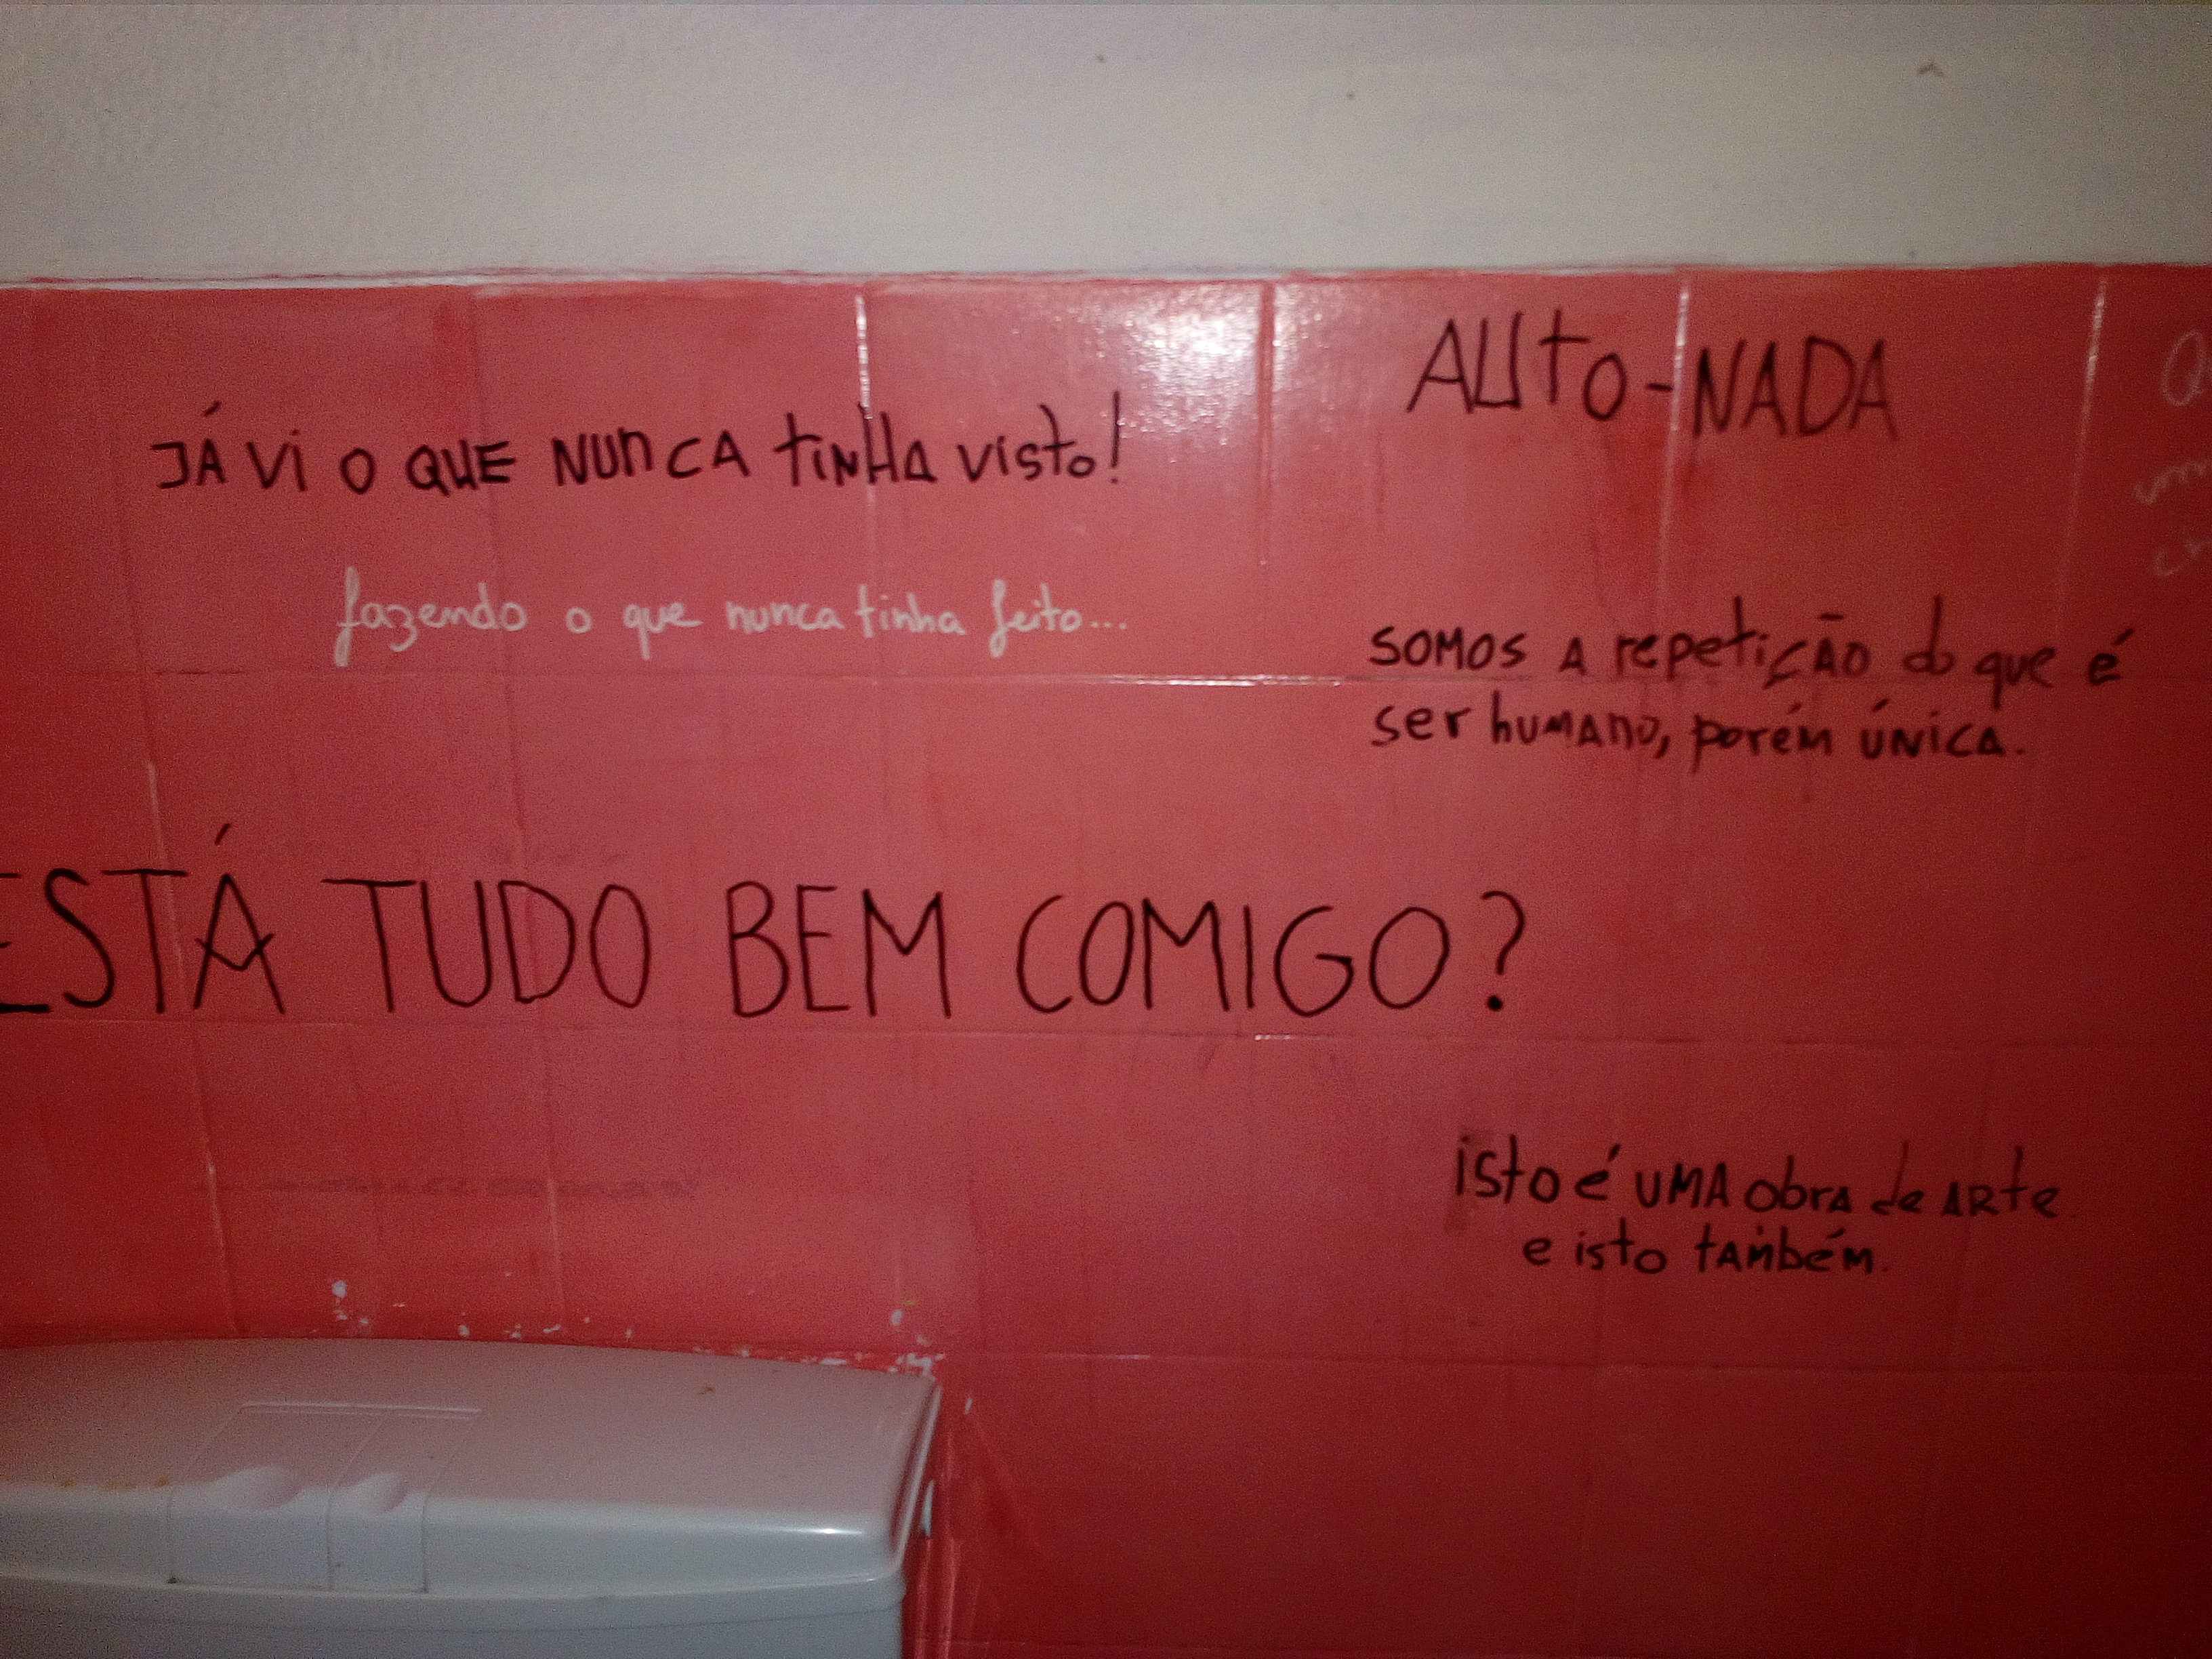 JÁ Vi O QUE NUNCA tiNHA visto!
fazendo o que nunca tinha feito...
AUto-NADA
SOMOS A repetiÇÃO do que é
ser huMANO, porém ÚNiCA.
ESTÁ TUDO BEM COMIGO?
isto é UMA obrA de ARte
e isto tAMbéM.